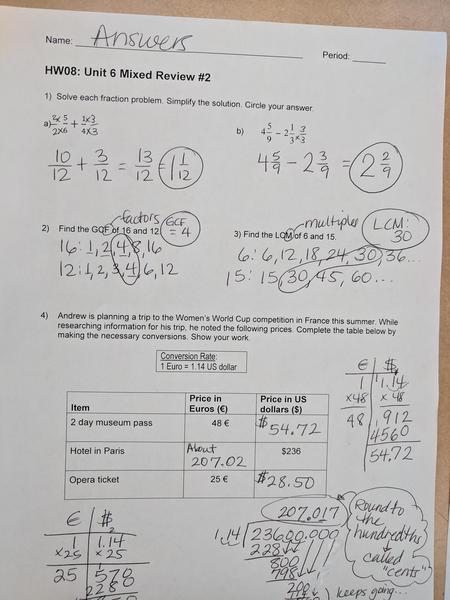 Name: Answers
Period:
HW08: Unit 6 Mixed Review #2
1) Solve each fraction problem. Simplify the solution. Circle your answer.
a) 2x5/2x6 + 1x3/4x3
b) 4 5/9 - 2 1/3 x3/x3
10/12 + 3/12 = 13/12 = 1 1/12
4 5/9 - 2 3/9 = 2 2/9
factors
2) Find the GCF of 16 and 12.
GCF = 4
16: 1, 2, 4, 8, 16
12: 1, 2, 3, 4, 6, 12
multiples
3) Find the LCM of 6 and 15.
LCM: 30
6: 6, 12, 18, 24, 30, 36...
15: 15, 30, 45, 60...
4) Andrew is planning a trip to the Women's World Cup competition in France this summer. While
researching information for his trip, he noted the following prices. Complete the table below by
making the necessary conversions. Show your work.
Conversion Rate:
1 Euro = 1.14 US dollar
Item Price in Euros (€) Price in US dollars ($)
2 day museum pass 48 € $54.72
Hotel in Paris About 207.02 $236
Opera ticket 25 € $28.50
€ $
1 1.14
x48 x 48
48 912
4560
54.72
€ $
1 1.14
x25 x 25
25 570
228
207.017
1.14 23600.000
228
800
798
200
keeps going...
Round to
the
hundredths
called
"cents"